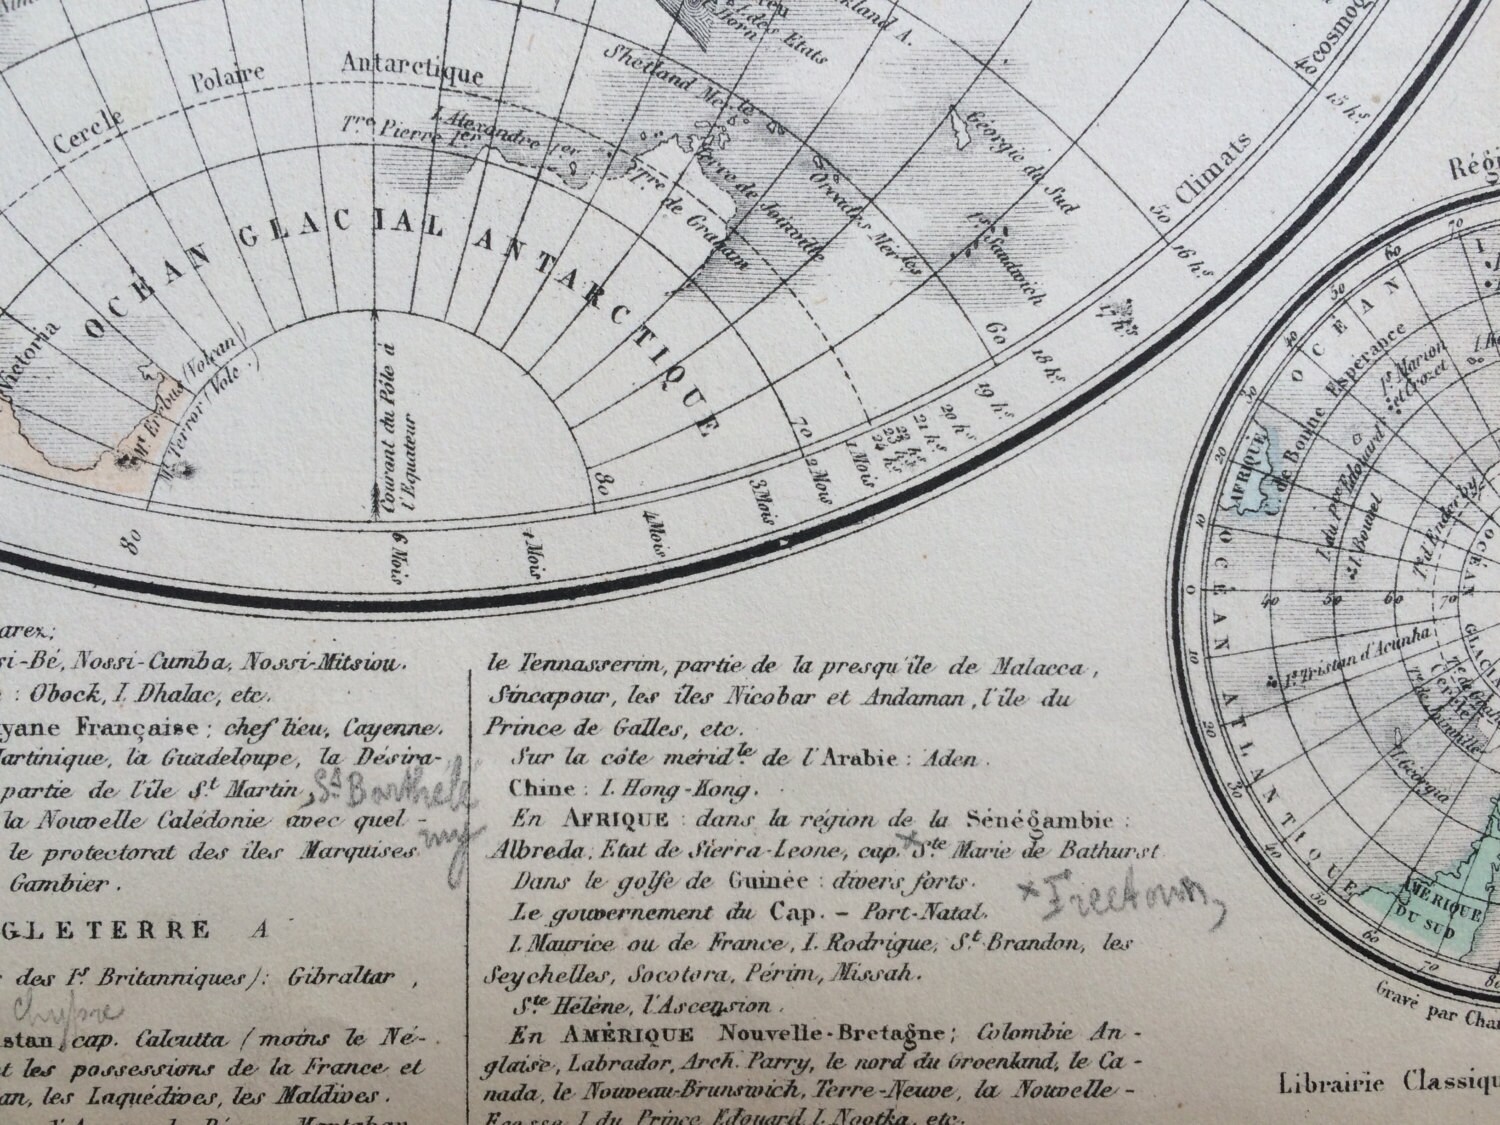 I. des Etats
Horn
kland A.
cosmog
Shetland Mér.le
Cercle Polaire Antarctique
Tre Pierre 1er
I. Alexandre 1er
Tre de Graham
Terre de Joinville
Orcades Mér.les
Géorgie du Sud
Is Sandwich
Climats
OCÉAN GLACIAL ANTARCTIQUE
Victoria
Mt Erebus (Volcan)
Mt Terror (Volc.)
Courant du Pôle à
l'Equateur
40
50
60
70
80
80
15 hs
16 hs
17 hs
18 hs
19 hs
20 hs
21 hs
22 hs
23 hs
24 hs
1 Mois
2 Mois
3 Mois
4 Mois
6 Mois
Régi
OCÉAN
de Bonne Espérance
Is Marion
et Crozet
AFRIQUE
I. du pce Edouard
I. Bouvet
Te d'Enderby
OCÉAN
GLACIA
OCÉAN ATLANTIQUE
Is Tristan d'Acunha
Cercle
I. Géorgia
AMÉRIQUE
DU SUD
70
60
50
40
30
20
10
0
10
20
30
40
50
60
70
80
40 50 60 70
Gravé par Char
Librairie Classiqu
arez;
si-Bé, Nossi-Cumba, Nossi-Mitsiou.
: Obock, I. Dhalac, etc.
yane Française : chef lieu, Cayenne.
artinique, la Guadeloupe, la Désira-
partie de l'île St Martin, St Barthélé
my
la Nouvelle Calédonie avec quel-
le protectorat des iles Marquises
Gambier.
GLETERRE A
des Is Britanniques): Gibraltar,
Chypre
stan, cap. Calcutta (moins le Né-
t les possessions de la France et
an, les Laquédives, les Maldives.
le Tennasserim, partie de la presqu'île de Malacca,
Sincapour, les îles Nicobar et Andaman, l'île du
Prince de Galles, etc.
Sur la côte mérid.le de l'Arabie : Aden.
Chine : I. Hong-Kong.
En AFRIQUE : dans la région de la Sénégambie :
Albreda, Etat de Sierra-Leone, cap. × Ste Marie de Bathurst
Dans le golfe de Guinée : divers forts.
× Freetown,
Le gouvernement du Cap. – Port-Natal.
I. Maurice ou de France, I. Rodrigue, St Brandon, les
Seychelles, Socotora, Périm, Missah.
Ste Hélène, l'Ascension.
En AMÉRIQUE Nouvelle-Bretagne; Colombie An-
glaise, Labrador, Arch. Parry, le nord du Groenland, le Ca-
nada, le Nouveau-Brunswich, Terre-Neuve, la Nouvelle-
Ecosse, I. du Prince Edouard, I. Nootka, etc.